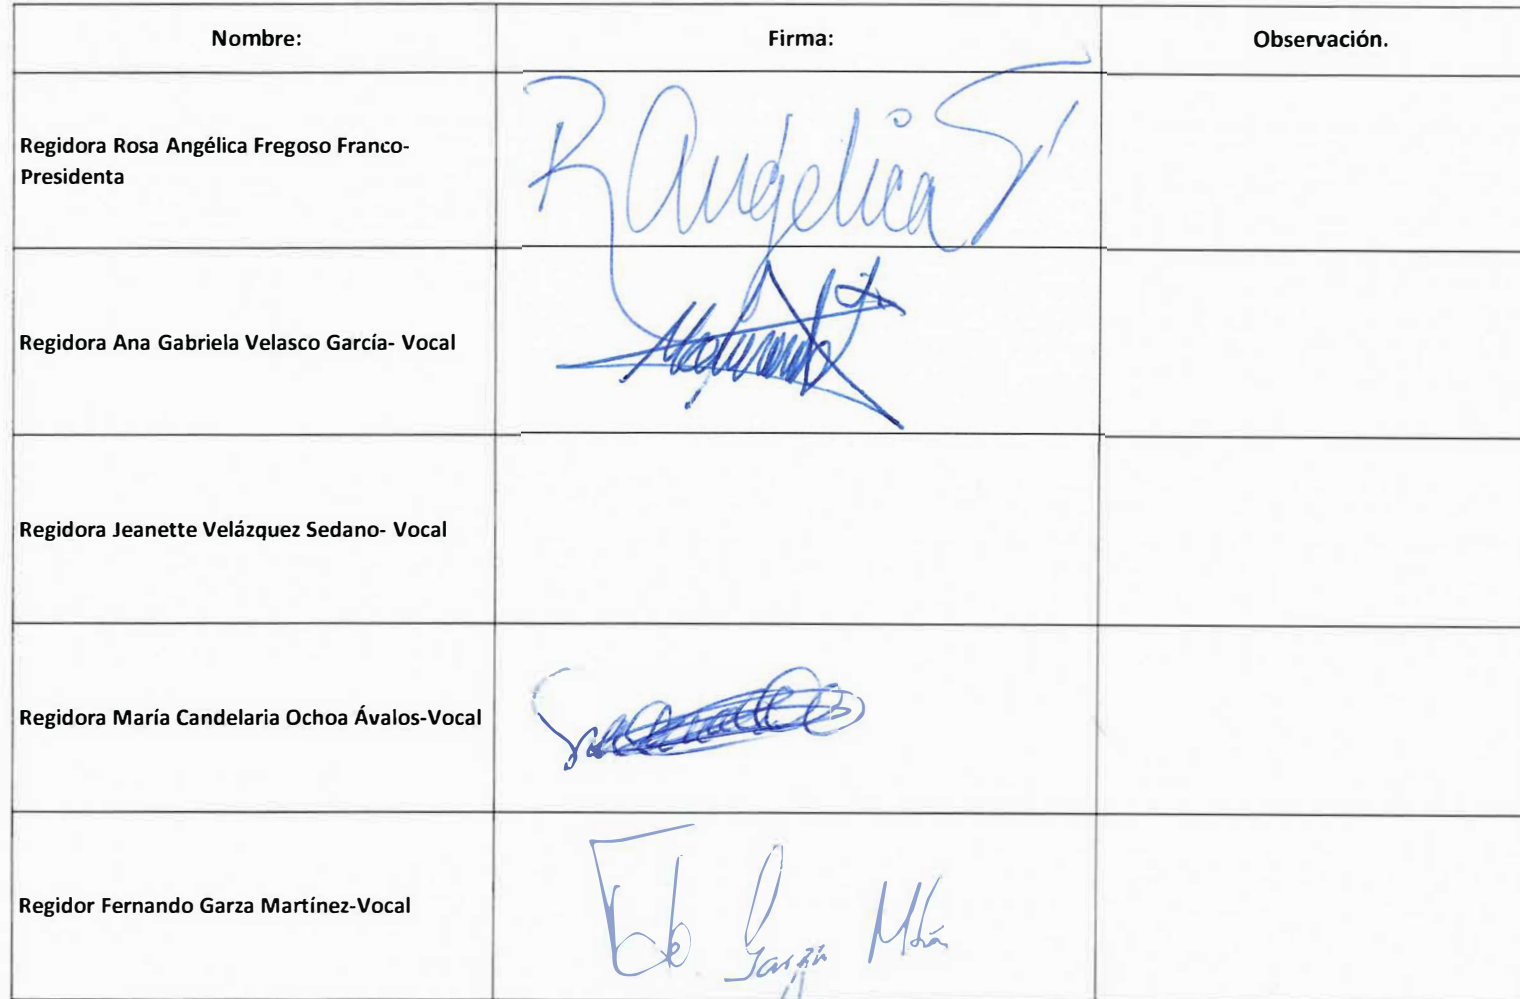 Nombre: Firma: Observación.
Regidora Rosa Angélica Fregoso Franco-
Presidenta
R Angelica
Regidora Ana Gabriela Velasco García- Vocal
Regidora Jeanette Velázquez Sedano- Vocal
Regidora María Candelaria Ochoa Ávalos-Vocal
Regidor Fernando Garza Martínez-Vocal
Garza